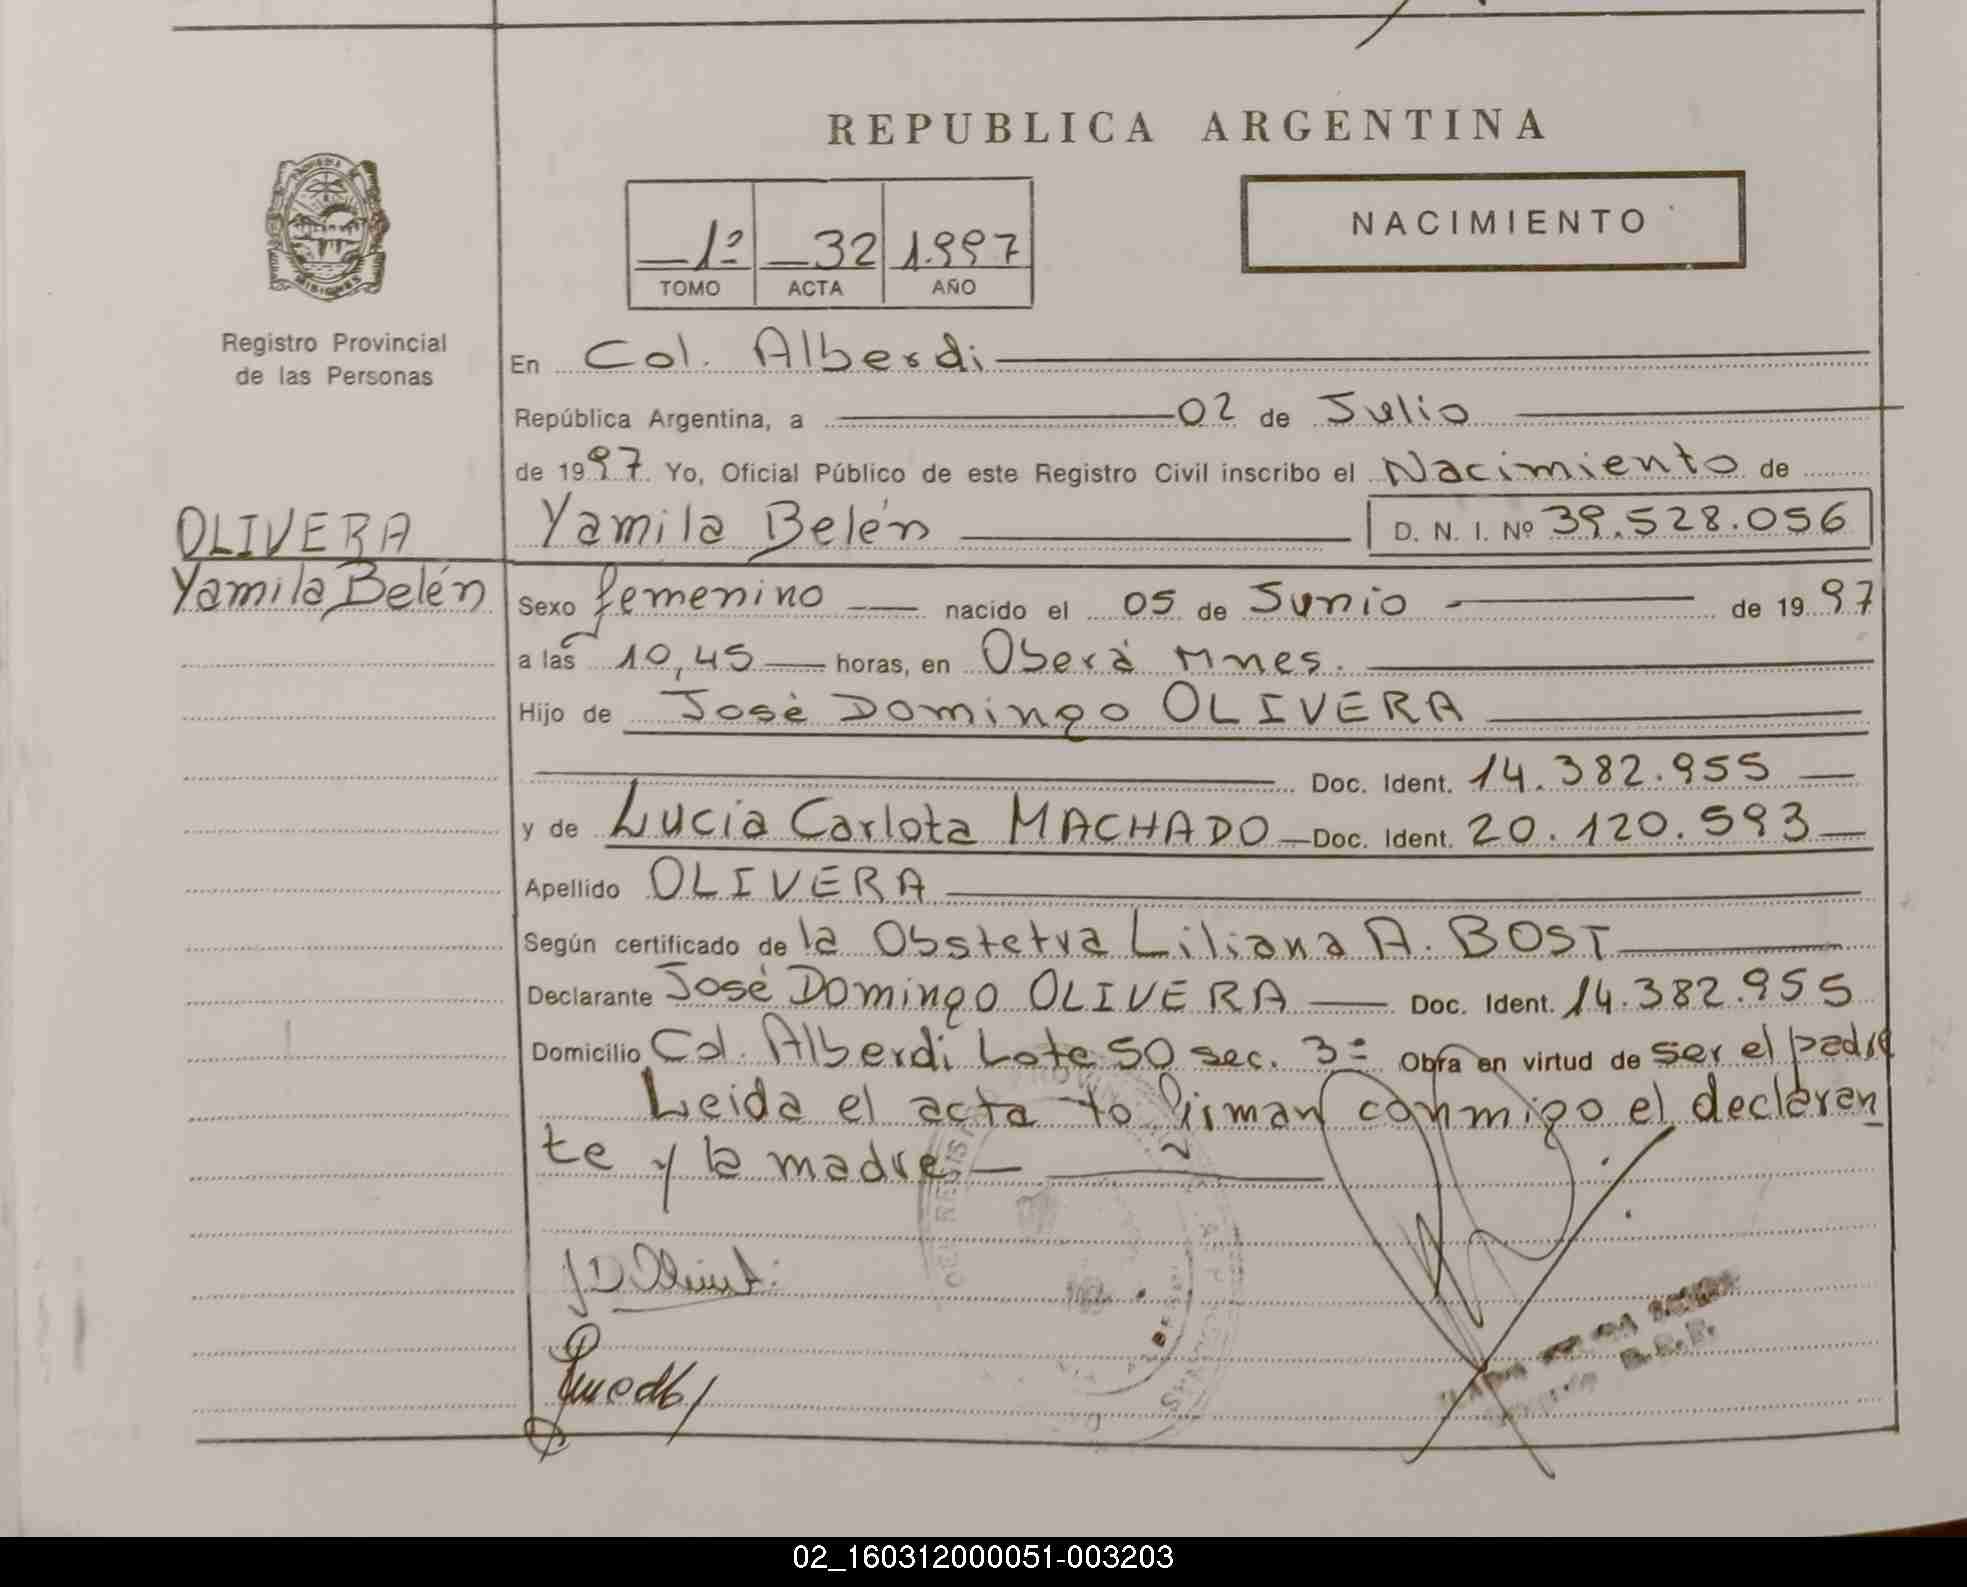 REPUBLICA ARGENTINA
NACIMIENTO
1º 32 1.997
TOMO ACTA AÑO
MISIONES
Registro Provincial
de las Personas
En Col. Alberdi
República Argentina, a 02 de Julio
de 1997. Yo, Oficial Público de este Registro Civil inscribo el Nacimiento de
OLIVERA
Yamila Belén
Yamila Belén D. N. I. Nº 39.528.056
Sexo femenino nacido el 05 de Junio de 1997
a las 10,45 horas, en Oberá Mnes.
Hijo de José Domingo OLIVERA
Doc. Ident. 14.382.955
y de Lucia Carlota MACHADO Doc. Ident. 20.120.593
Apellido OLIVERA
Según certificado de la Obstetra Liliana A. BOST
Declarante José Domingo OLIVERA Doc. Ident. 14.382.955
Domicilio Col. Alberdi Lote 50 sec. 3º Obra en virtud de ser el padre
Leida el acta la firman conmigo el declaran
te y la madre
02_160312000051-003203